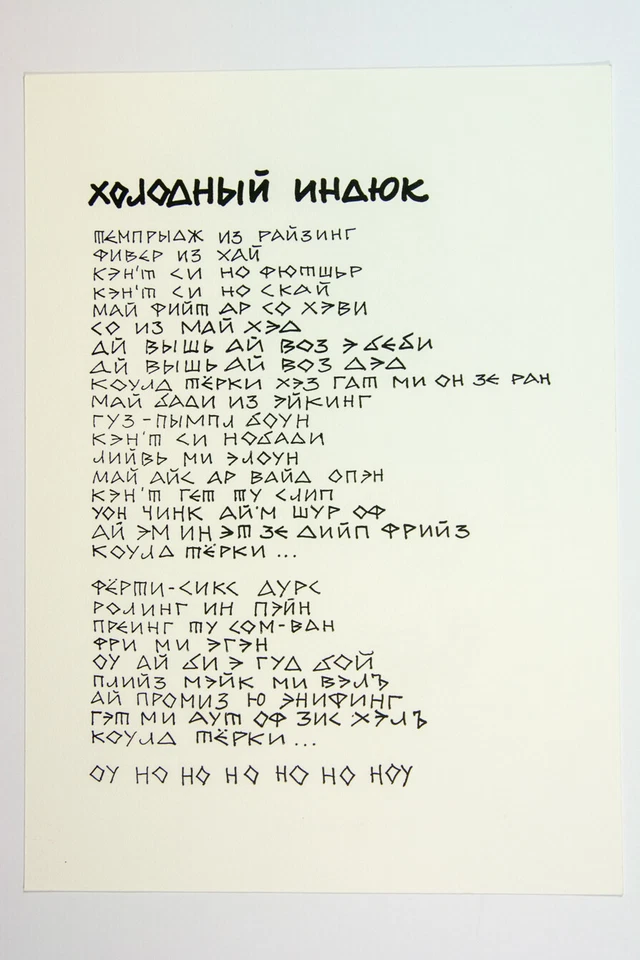 ХОЛОДНЫЙ ИНДЮК
ТЕМПРЫДЖ ИЗ РАЙЗИНГ
ФИВЕР ИЗ ХАЙ
КЭН'Т СИ НО ФЮТШЬР
КЭН'Т СИ НО СКАЙ
МАЙ ФИЙТ АР СО ХЭВИ
СО ИЗ МАЙ ХЭД
АЙ ВЫШЬ АЙ ВОЗ Э БЕБИ
АЙ ВЫШЬ АЙ ВОЗ ДЭД
КОУЛД ТЁРКИ ХЭЗ ГАТ МИ ОН ЗЕ РАН
МАЙ БАДИ ИЗ ЭЙКИНГ
ГУЗ-ПЫМПЛ БОУН
КЭН'Т СИ НОБАДИ
ЛИЙВЬ МИ ЭЛОУН
МАЙ АЙС АР ВАЙД ОПЭН
КЭН'Т ГЕТ ТУ СЛИП
УОН ЧИНК АЙ'М ШУР ОФ
АЙ ЭМ ИН ЭТ ЗЕ ДИЙП ФРИЙЗ
КОУЛД ТЁРКИ...
ФЁРТИ-СИКС АУРС
РОЛИНГ ИН ПЭЙН
ПРЕИНГ ТУ СОМ-ВАН
ФРИ МИ ЭГЭН
ОУ АЙ БИ Э ГУД БОЙ
ПЛИЙЗ МЭЙК МИ ВЭЛЪ
АЙ ПРОМИЗ Ю ЭНИФИНГ
ГЭТ МИ АУТ ОФ ЗИС ХЭЛЪ
КОУЛД ТЁРКИ...
ОУ НО НО НО НО НО НОУ